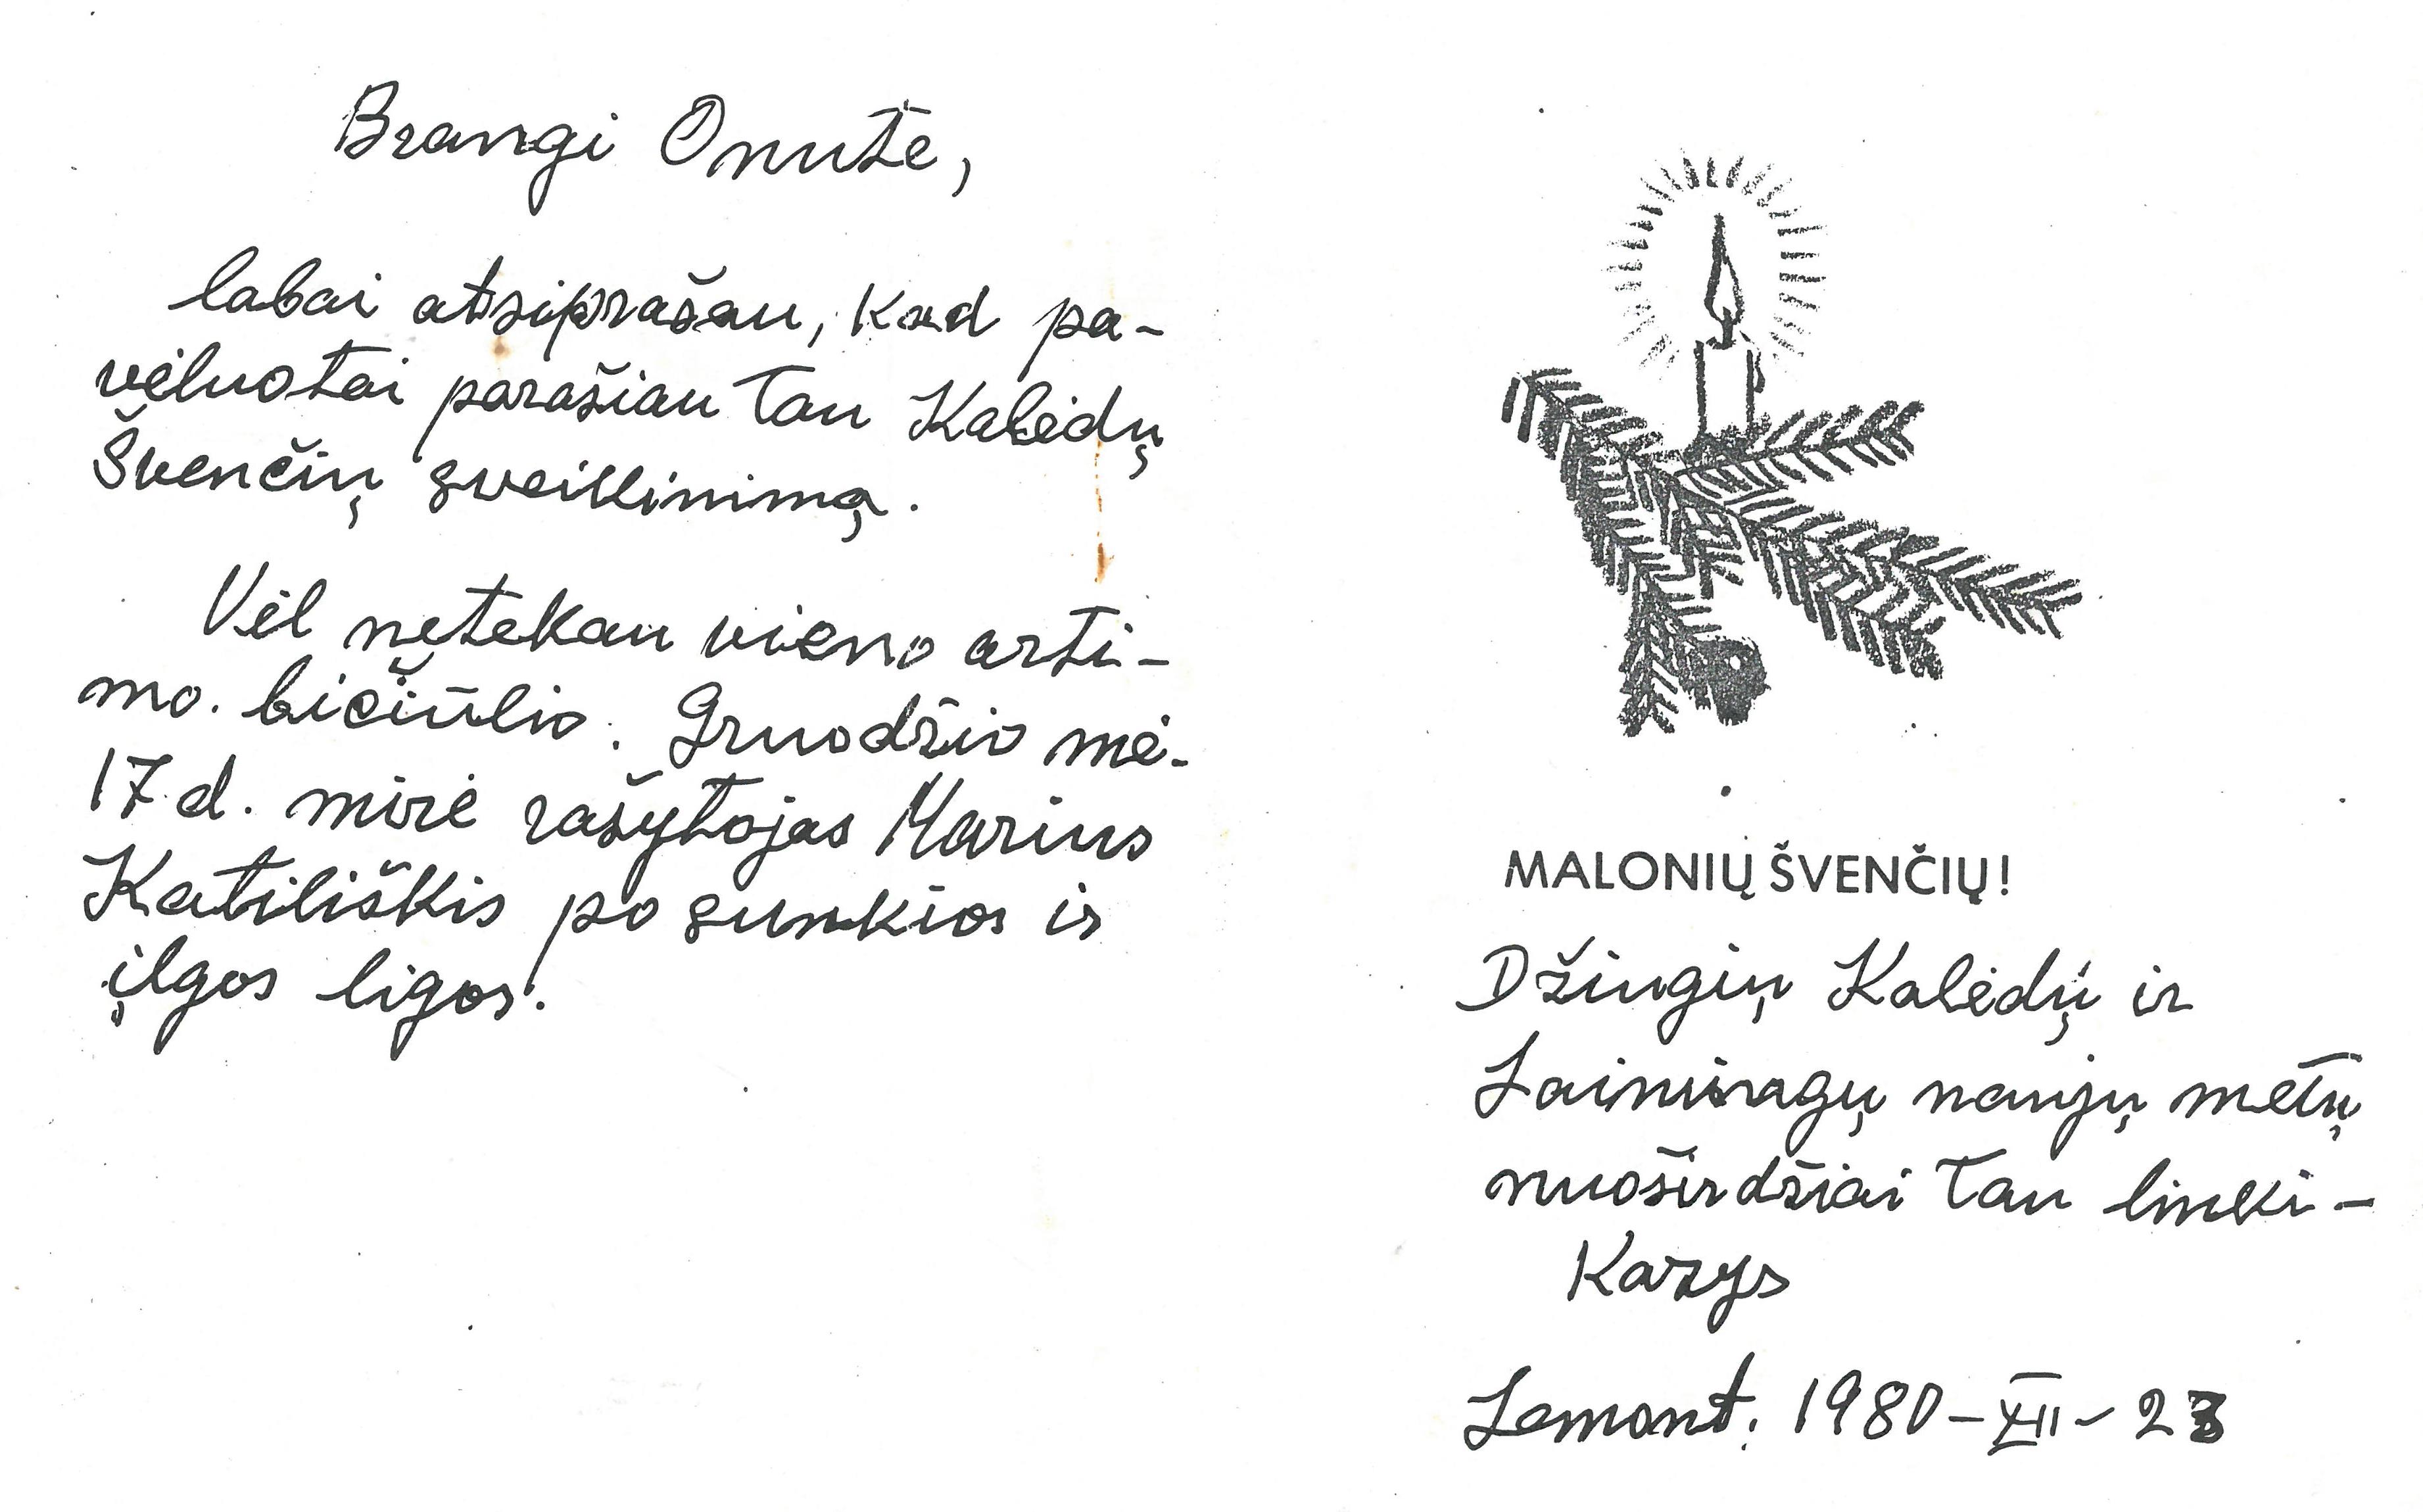 Brangi Onute,
labai atsiprašau, kad pa-
vėluotai parašiau Tau Kalėdų
Švenčių sveikinimą.
Vėl netekau vieno arti-
mo bičiūlio. Gruodžio mė.
17 d. mirė rašytojas Marius
Katiliškis po sunkios ir
įlgos ligos.
MALONIŲ ŠVENČIŲ!
Džiugių Kalėdų ir
Laimingų naujų metų
nuoširdžiai Tau linki-
Kazys
Lemont, 1980-XII-23